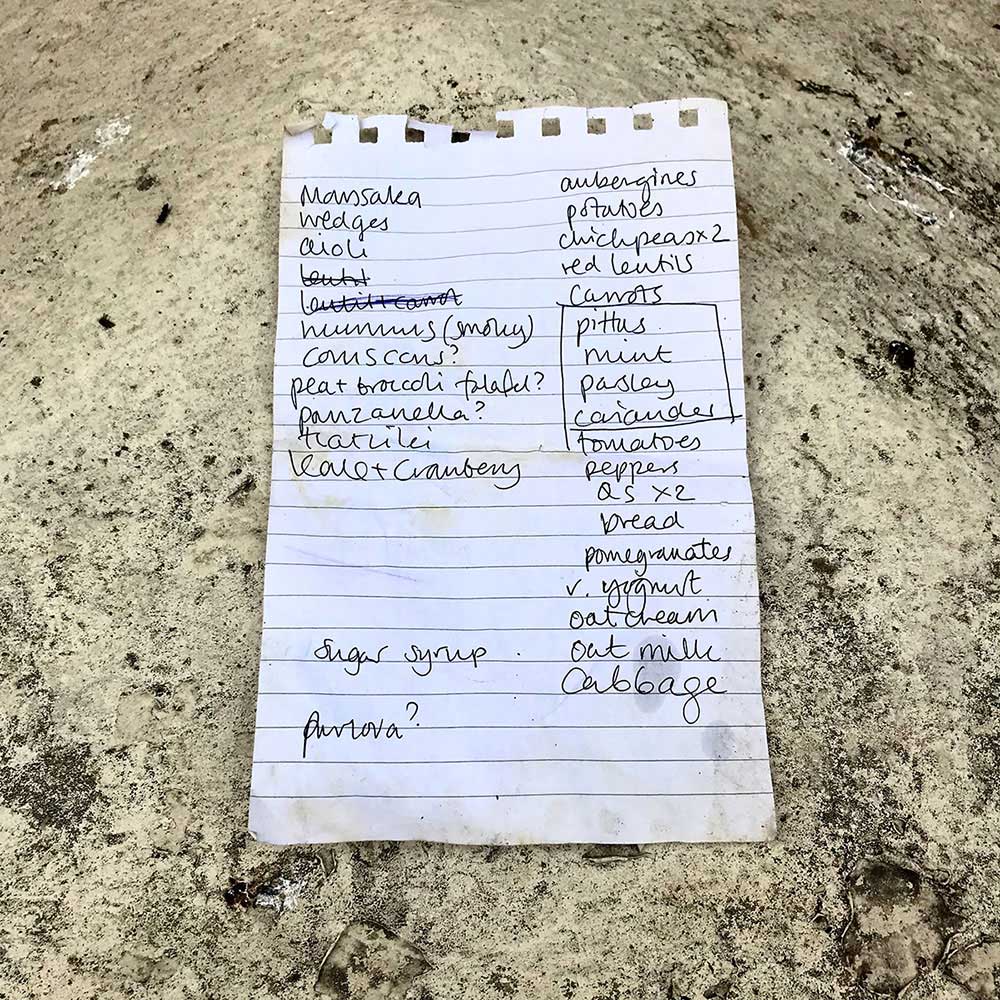 Moussaka
wedges
aioli
lentil
lentil + carrot
hummus (smoky)
couscous?
pea + broccoli falafel?
panzanella?
tzatziki
kale + cranberry
sugar syrup
pavlova?
aubergines
potatoes
chickpeas x2
red lentils
carrots
pittas
mint
pasley
coriander
tomatoes
peppers
x2
bread
pomegranates
v. yoghurt
oat cream
oat milk
Cabbage